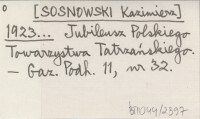 [SOSNOWSKI Kazimierz]
1923... Jubileusz Polskiego
Towarzystwa Tatrzańskiego.
— Gaz. Podh. 11, nr 32.